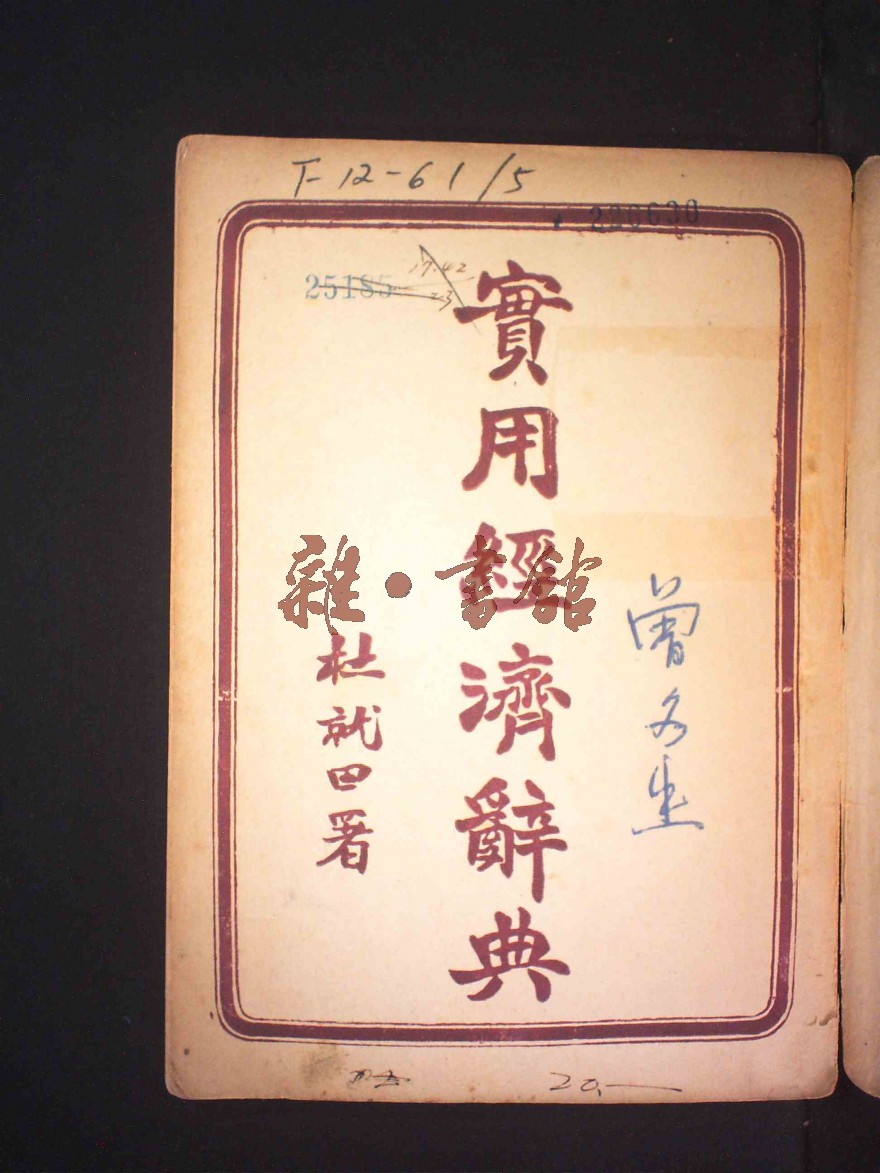 T-12-61/5
220630
25185
17.42
23
實用經濟辭典
雜·書館
杜就田署
曾文生
20.—